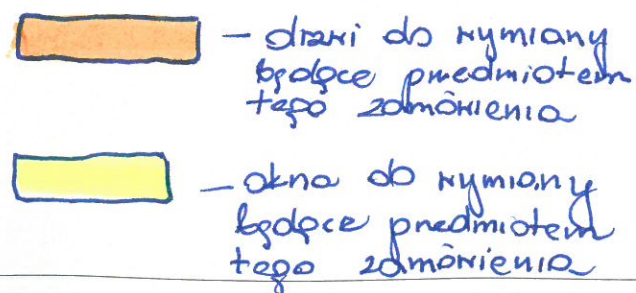 – drzwi do wymiany
będące przedmiotem
tego zamówienia
– okna do wymiany
będące przedmiotem
tego zamówienia